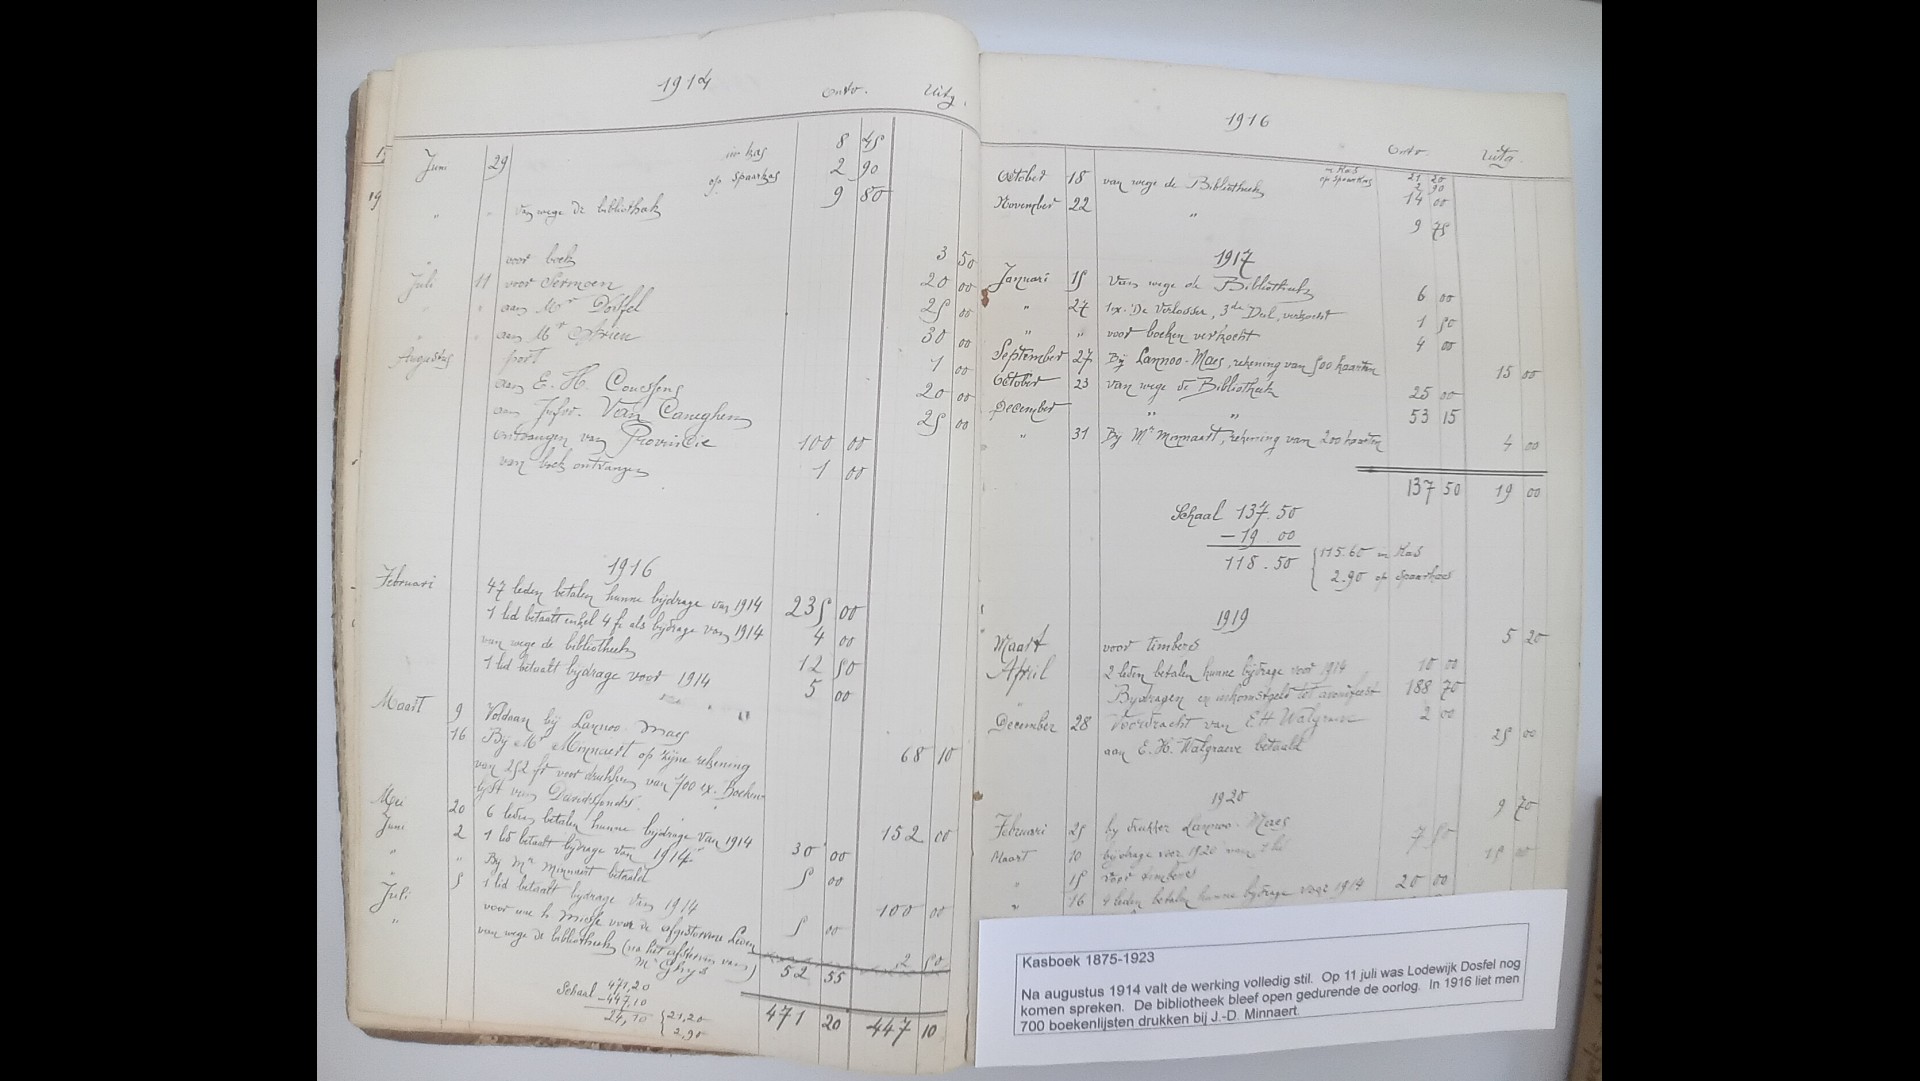 1914
Ontv. Uitg.
in kas 8 45
Juni 29 op Spaarkas 2 90
" " van wege de bibliotheek 9 80
voor boek 3 50
Juli 11 voor Sermoen 20 00
" " aan Mr Dosfel 25 00
" aan Mr 30 00
Augustus port 1 00
aan E. H. Coussens 20 00
aan Jufvr. Van Caneghem 25 00
ontvangen van Provincie 100 00
van boek ontvangen 1 00
1916
Februari 47 leden betalen hunne bijdrage van 1914 235 00
1 lid betaalt enkel 4 fr als bijdrage van 1914 4 00
van wege de bibliotheek 12 50
1 lid betaalt bijdrage voor 1914 5 00
Maart 9 Voldaan bij Lannoo-Maes 68 10
16 Bij Mr Minnaert op zijne rekening
van 252 fr voor drukken van 700 ex. Boeken-
lijst van Davidsfonds. 152 00
Mei 20 6 leden betalen hunne bijdrage van 1914 30 00
Juni 2 1 lid betaalt bijdrage van 1914 5 00
" " Bij Mr Minnaert betaald 100 00
Juli 5 1 lid betaalt bijdrage van 1914 5 00
" voor eene h. Misse voor de afgestorvene Leden 2 50
van wege de bibliotheek (na het afsterven van
Mr Ghys) 52 55
471 20 447 10
471,20
Schaal -447,10
24,10 { 21,20
2,90
1916
Ontv. Uitg.
in Kas 21 20
op Spaarkas 2 90
October 18 van wege de Bibliotheek 14 00
November 22 " 9 75
1917
Januari 15 Van wege de Bibliotheek 6 00
" 27 1 ex. De Verlosser, 3de Deel, verkocht 1 50
" " voor boeken verkocht 4 00
September 27 Bij Lannoo-Maes, rekening van 500 kaarten 15 00
October 23 van wege de Bibliotheek 25 00
December " " 53 15
" 31 Bij Mr Minnaert, rekening van 200 kaarten 4 00
137 50 19 00
Schaal 137.50
-19.00
118.50 { 115.60 in Kas
2.90 op Spaarkas
1919
Maart voor timbers 5 20
April 2 leden betalen hunne bijdrage voor 1914 10 00
Bijdragen en inkomstgeld tot avondfeest 188 70
December 28 Voordracht van E H Walgrave 2 00
aan E. H. Walgraeve betaald 25 00
1920
Februari 25 bij drukker Lannoo-Maes 9 70
Maart 10 bijdrage voor 1920 van 1 lid 7 50
" 15 voor timbers 15 00
" 16 4 leden betalen hunne bijdrage voor 1914 20 00
Kasboek 1875-1923
Na augustus 1914 valt de werking volledig stil. Op 11 juli was Lodewijk Dosfel nog
komen spreken. De bibliotheek bleef open gedurende de oorlog. In 1916 liet men
700 boekenlijsten drukken bij J.-D. Minnaert.